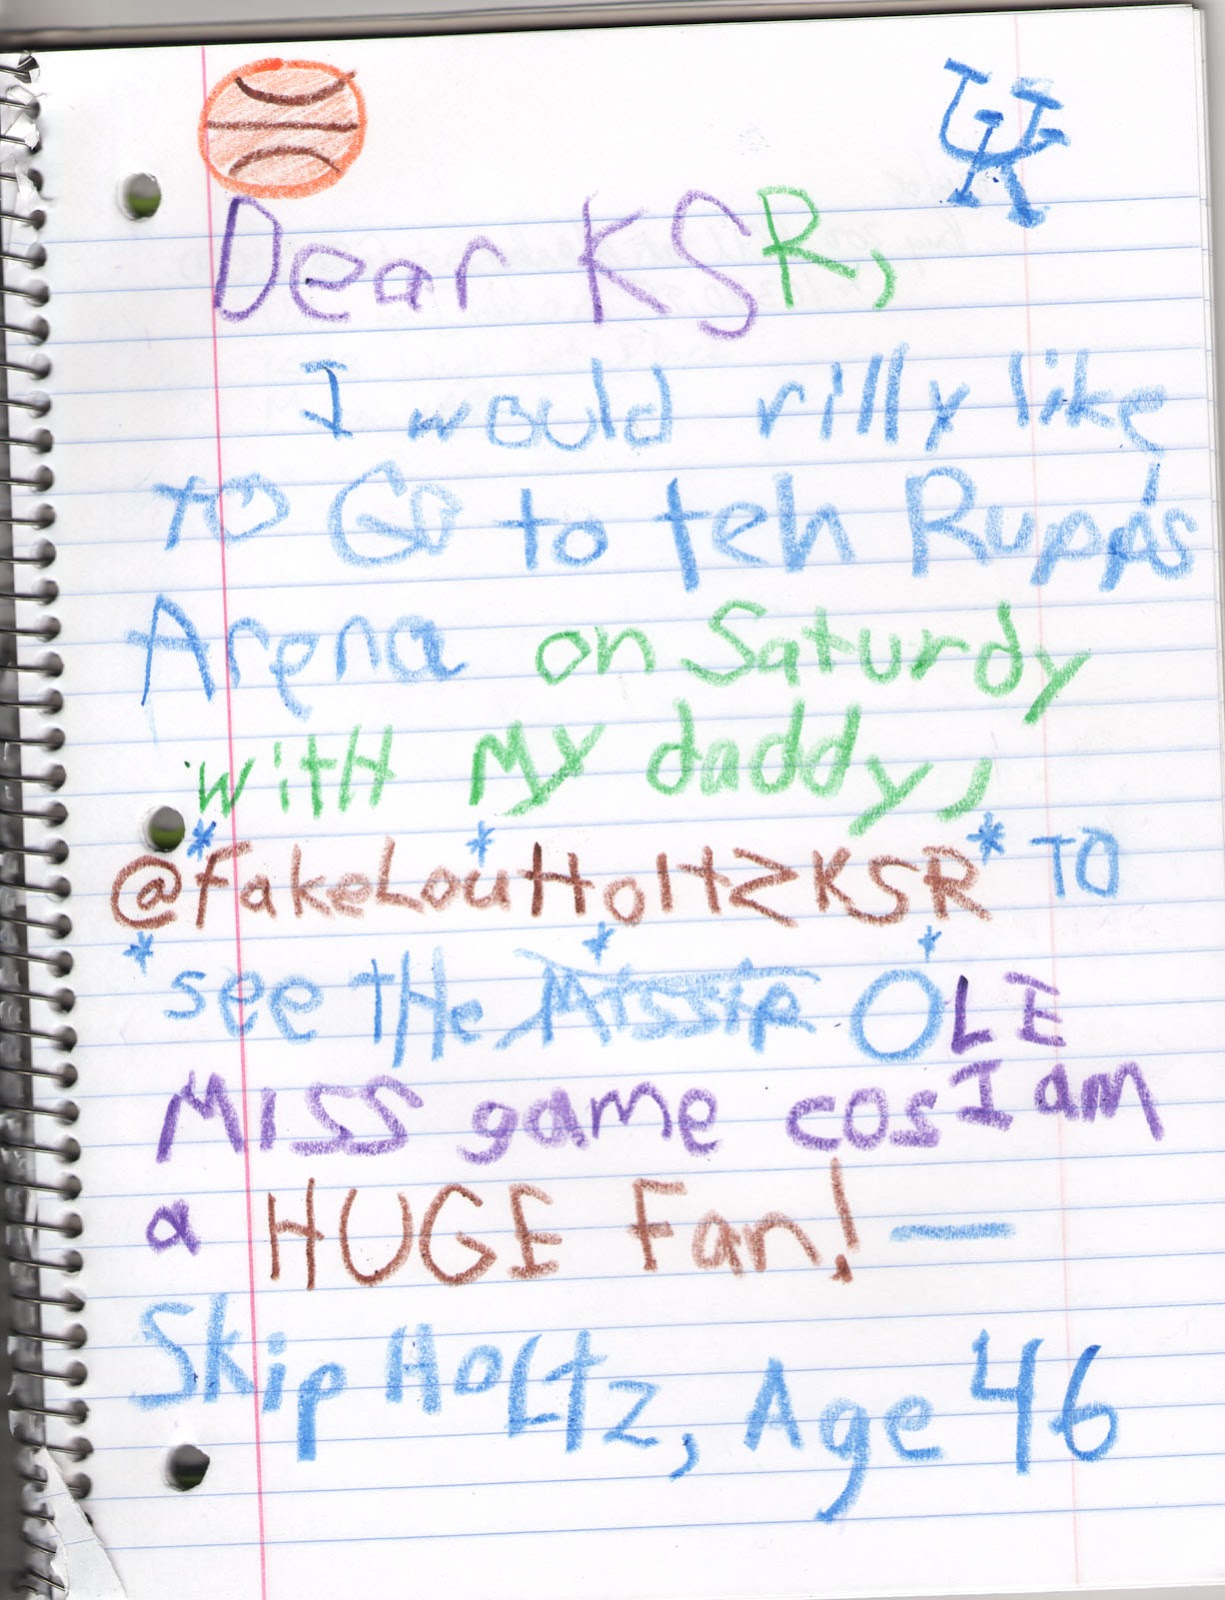 UK
Dear KSR,
I would rilly like
to Go to teh Rupp's
Arena on Saturdy
witH My daddy,
@FakeLouHoltzKSR TO
see tHe Missip OLE
MISS game cos I am
a HUGE Fan! —
Skip Holtz, Age 46